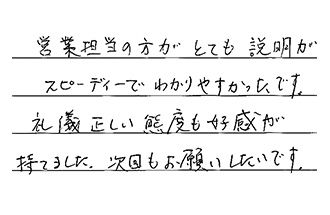 営業担当の方がとても説明が
スピーディーでわかりやすかったです。
礼儀正しい態度も好感が
持てました。次回もお願いしたいです。